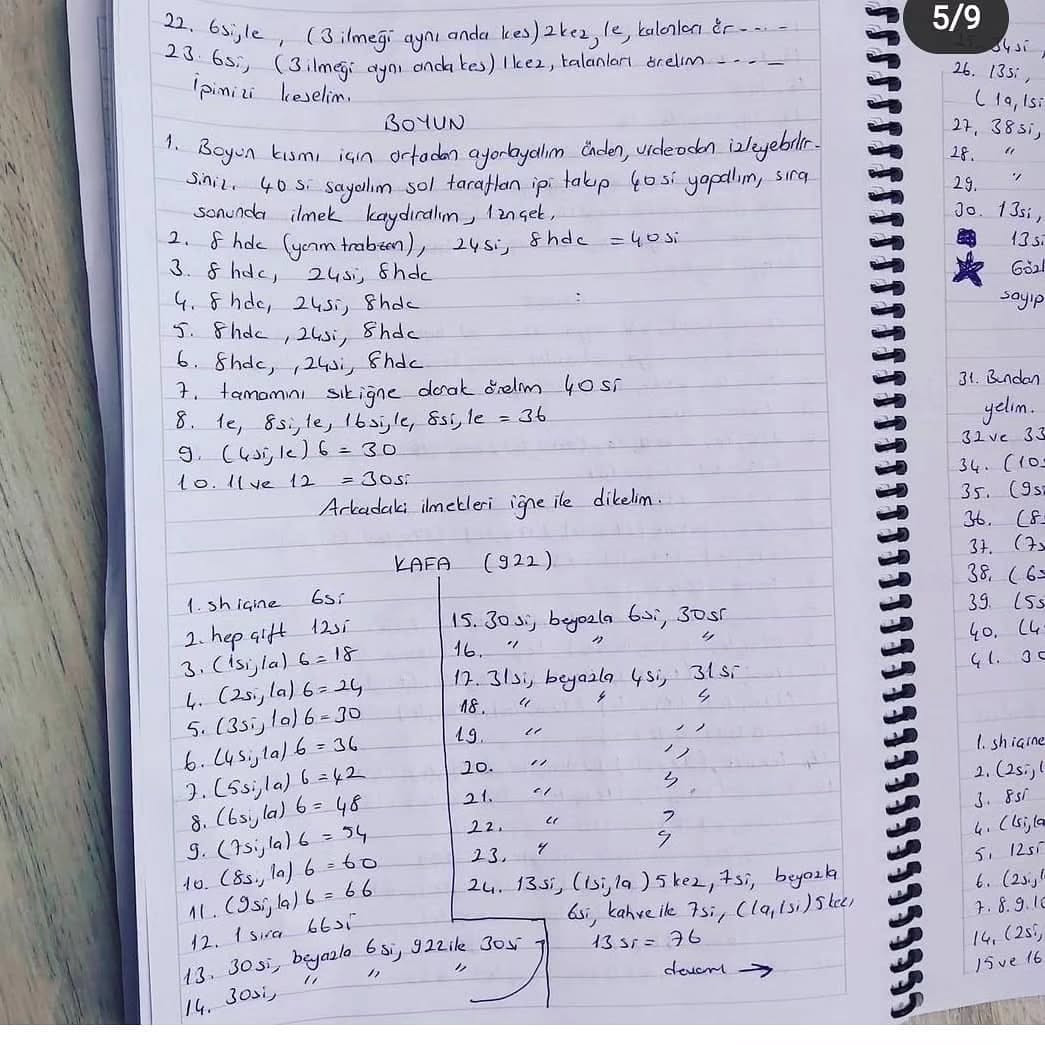 5/9
22. 6si,le, (3 ilmeği aynı anda kes) 2kez, le, kalanları ör----
23. 6si, (3 ilmeği aynı anda kes) 1kez, kalanları örelim ----
ipinizi keselim.
BOYUN
1. Boyun kısmı için ortadan ayarlayalım önden, videodan izleyebilir-
siniz. 40 si sayalım sol taraftan ipi takıp 40si yapalım, sıra
sonunda ilmek kaydıralım, 1zn çek,
2. 8 hdc (yarım trabzan), 24si, 8hdc = 40si
3. 8 hdc, 24si, 8hdc
4. 8 hdc, 24si, 8hdc
5. 8hdc, 24si, 8hdc
6. 8hdc, , 24si, 8hdc
7. tamamını sık iğne olarak örelim 40si
8. 1e, 8si,1e, 16si,1e, 8si,1e = 36
9. (4si,1e) 6 = 30
10. 11 ve 12 = 30si
Arkadaki ilmekleri iğne ile dikelim.
KAFA (922)
1. sh içine 6si
2. hep çift 12si
3. (1si,1a) 6 = 18
4. (2si,1a) 6 = 24
5. (3si,1a) 6 = 30
6. (4si,1a) 6 = 36
7. (5si,1a) 6 = 42
8. (6si,1a) 6 = 48
9. (7si,1a) 6 = 54
10. (8si,1a) 6 = 60
11. (9si,1a) 6 = 66
12. 1 sıra 66si
13. 30si, beyazla 6si, 922 ile 30si
14. 30si, " "
15. 30si, beyazla 6si, 30si
16. " " "
17. 31si, beyazla 4si, 31si
18. " " "
19. " "
20. " "
21. " "
22. " "
23. " "
24. 13si, (1si,1a) 5 kez, 7si, beyazla
6si, kahve ile 7si, (1a,1si) 5kez,
13si = 76
devam →
34si,
26. 13si,
(1a,1si
27, 38si,
28. "
29. "
30. 13si,
13si
sayıp
31. Bundan
yelim.
32 ve 33
34. (10s
35. (9si
36. (8
37. (7s
38, (6s
39. (5s
40. (4
41. 30
1. sh içine
2. (2si,1
3. 8si
4. (1si,1a
5, 12si
6. (2si,1
7. 8. 9. 10
14, (2si,
15 ve 16